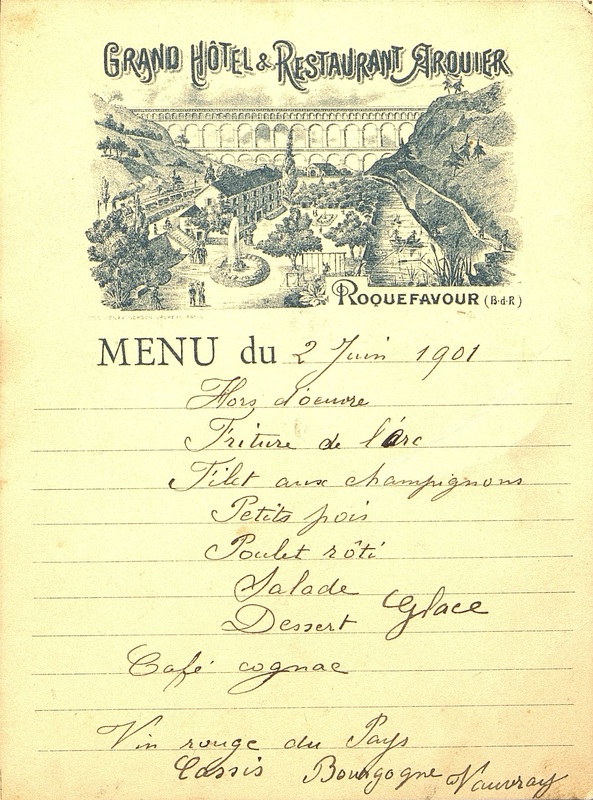 GRAND HÔTEL & RESTAURANT ARQUIER
ROQUEFAVOUR (B-d-R)
MENU du 2 Juin 1901
Hors d'oeuvre
Friture de l'Arc
Filet aux champignons
Petits pois
Poulet rôti
Salade
Dessert Glace
Café cognac
Vin rouge du Pays
Cassis Bourgogne Vauvray